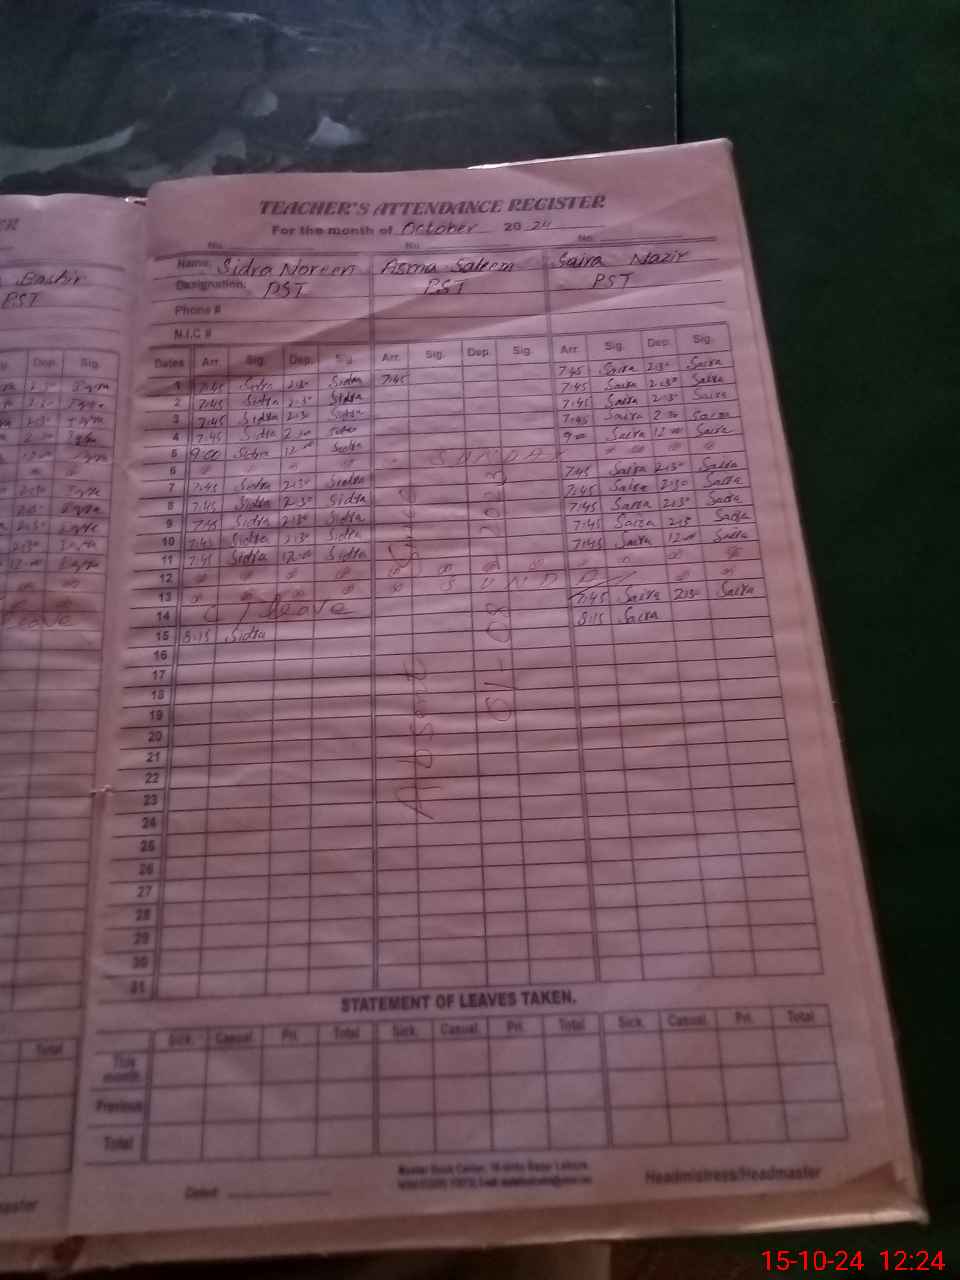 TEACHER'S ATTENDANCE REGISTER
For the month of October 20 24
No. No. No.
Name: Sidra Noreen Asma Saleem Saira Nazir
Designation: PST PST PST
Phone #
N.I.C #
Dates Arr. Sig. Dep. Sig. Arr. Sig. Dep. Sig. Arr. Sig. Dep. Sig.
1 7:45 Sidra 2:30 Sidra 7:45 7:45 Saira 2:30 Saira
2 7:45 Sidra 2:30 Sidra 7:45 Saira 2:30 Saira
3 7:45 Sidra 2:30 Sidra 7:45 Saira 2:30 Saira
4 7:45 Sidra 2:30 Sidra 7:45 Saira 2:30 Saira
5 9:00 Sidra 12:00 Sidra 9:00 Saira 12:00 Saira
6 SUNDAY
7 7:45 Sidra 2:30 Sidra 7:45 Saira 2:30 Saira
8 7:45 Sidra 2:30 Sidra 7:45 Saira 2:30 Saira
9 7:45 Sidra 2:30 Sidra 7:45 Saira 2:30 Saira
10 7:45 Sidra 2:30 Sidra 7:45 Saira 2:30 Saira
11 7:45 Sidra 12:00 Sidra 7:45 Saira 12:00 Saira
12
13 SUNDAY
14 C/leave 7:45 Saira 2:30 Saira
15 8:15 Sidra 8:15 Saira
16
17
18
19
20
21
22
23
24
25
26
27
28
29
30
31
Absent Since
01-08-2023
STATEMENT OF LEAVES TAKEN.
Sick. Casual. Pri. Total Sick. Casual. Pri. Total Sick. Casual. Pri. Total
This month
Previous
Total
Dated
Headmistress/Headmaster
Bashir
PST
Dep. Sig.
leave
Total
15-10-24 12:24